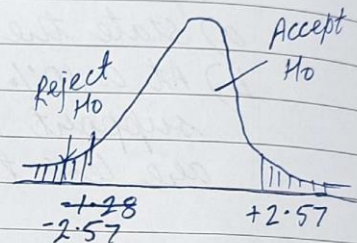 Accept
Ho
Reject
Ho
-1.28
-2.57
+2.57